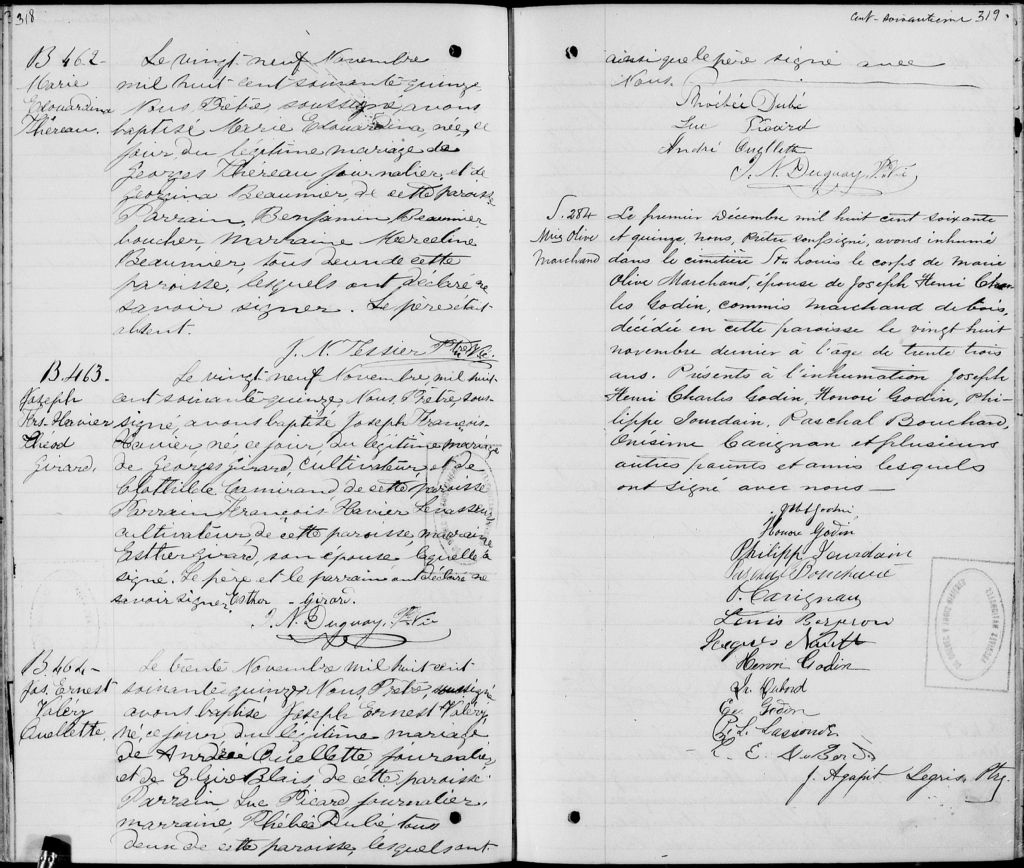 318
B 462-
Marie
Edouardina
Théreau.
Le vingt neuf Novembre
mil huit cent soixante quinze
Nous Prêtre soussigné avons
baptisé Marie Edouardina, née, ce
jour, du légitime mariage de
Georges Théreau journalier, et de
Georgina Beaumier, de cette paroisse
Parrain, Benjamin Beaumier
boucher, marraine Marceline
Beaumier, tous deux de cette
paroisse, lesquels ont déclaré ne
savoir signer. Le père était
absent.
J. N. Tessier Ptre Vic.
B 463.
Joseph
Frs. Xavier
Girard.
Le vingt neuf Novembre, mil huit
cent soixante quinze, Nous, Prêtre, sous-
signé, avons baptisé Joseph François-
Xavier, né, ce jour, du légitime mariage
de Georges Girard, cultivateur, et de
Clothilde Camirand, de cette paroisse
Parrain François Xavier Levasseur
cultivateur, de cette paroisse, marraine
Esther Girard, son épouse laquelle a
signé. Le père et le parrain ont déclaré ne
savoir signer. Esther Girard.
J. N. Duguay, Ptr Vic
B. 464-
Jos. Ernest
Valéry
Ouellette.
Le trente Novembre mil huit cent
soixante quinze, Nous Prêtre soussigné
avons baptisé Joseph Ernest Valéry,
né, ce jour du légitime mariage
de André Ouellette journalier,
et de Blais, de cette paroisse.
Parrain, Luc Picard, journalier,
marraine, Phébée Dubé, tous
deux de cette paroisse, lesquels ont
Cent-soixantième 319.
ainsi que le père signé avec
Nous.
Phébée Dubé
Luc Picard
André Ouellette
J. N. Duguay, Ptr Vic
S. 284
Olive
Marchand
Le premier Décembre mil huit cent soixante
et quinze, nous, prêtre soussigné, avons inhumé
dans le cimetière St. Louis le corps de Marie
Olive Marchand, épouse de Joseph Henri Char
les Godin, commis marchand de bois,
décédée en cette paroisse le vingt huit
novembre dernier à l'âge de trente trois
ans. Présents à l'inhumation Joseph
Henri Charles Godin, Honoré Godin, Phi-
lippe Jourdain, Paschal Bouchard,
Onésime Carignan et plusieurs
autres parents et amis lesquels
ont signé avec nous —
Honoré Godin
Philipp Jourdain
Paschal Bouchard
O. Carignan
Louis Bergeron
Henri Godin
Godin
P. L. Lassonde
E. DuBord
J. Agapit Legris, Ptr.